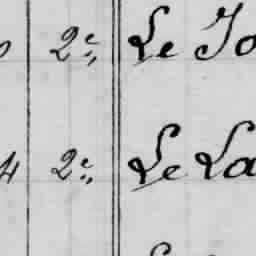 2e, Le Jo
4 2e, Le La